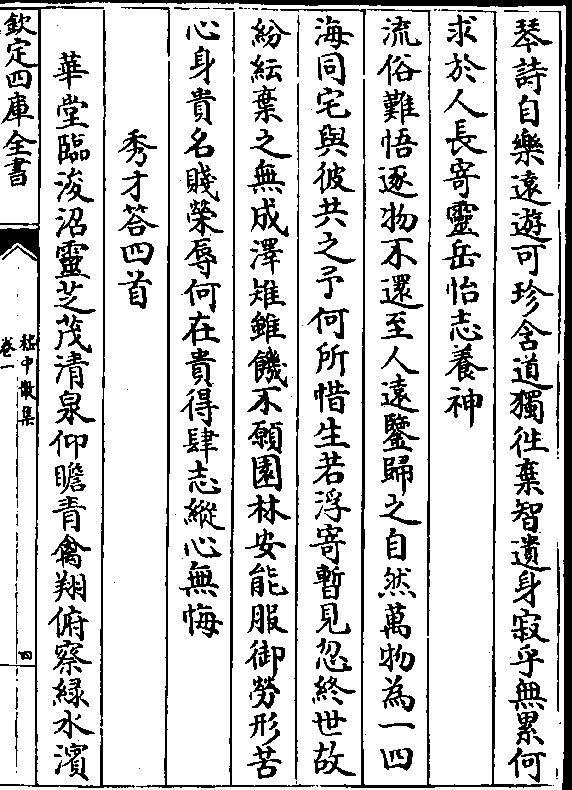 琴詩自樂遠遊可珍含道獨往棄智遺身寂乎無累何
求於人長寄靈岳怡志養神
流俗難悟逐物不還至人遠鑒歸之自然萬物為一四
海同宅與彼共之予何所惜生若浮寄暫見忽終世故
紛紜棄之無成澤雉雖饑不願園林安能服御勞形苦
心身貴名賤榮辱何在貴得肆志縱心無悔
秀才答四首
華堂臨浚沼靈芝茂清泉仰瞻青禽翔俯察緑水濱
欽定四庫全書
嵇中散集
卷一
四